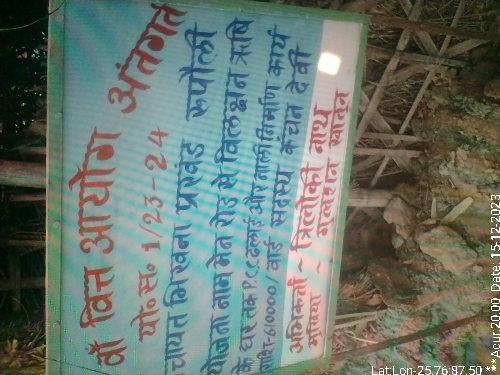 वाँ वित्त आयोग अंतर्गत
यो॰स॰ 1/23-24
चायत भिखना प्रखंड रूपौली
योजना नाम मेन रोड से विलक्षन ऋषि
के घर तक P.C.C ढलाई और नाली निर्माण कार्य
राशि-610000/ वार्ड सदस्य कंचन देवी
अभिकर्ता ~ त्रिलोकी नाथ
मुखिया ~ खातून
Lat Lon-25.76:87.50
**Acur:20.00 Date: 15-12-2023